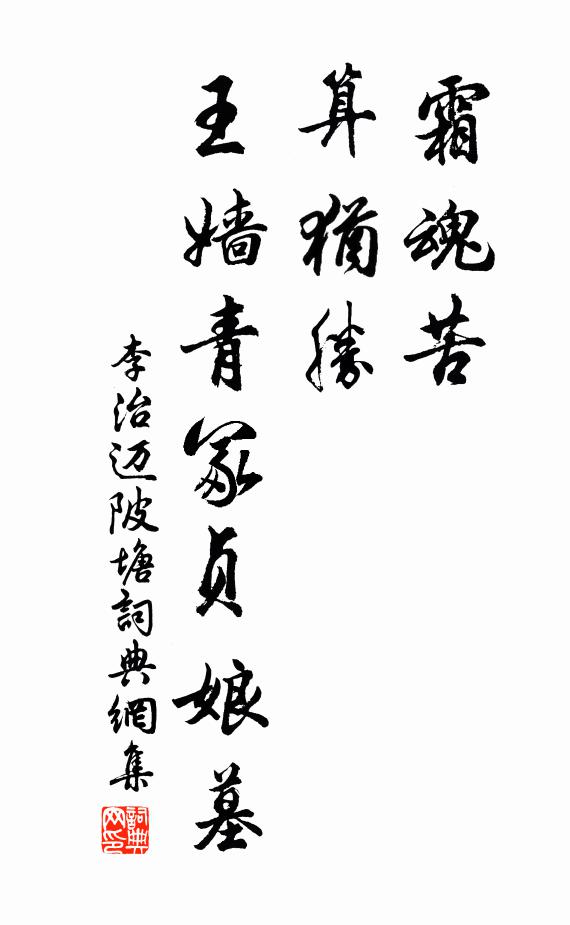 霜魂苦
算猶勝
王嫱青冢貞娘墓
李治迈陂塘詞典網集
詞典网印